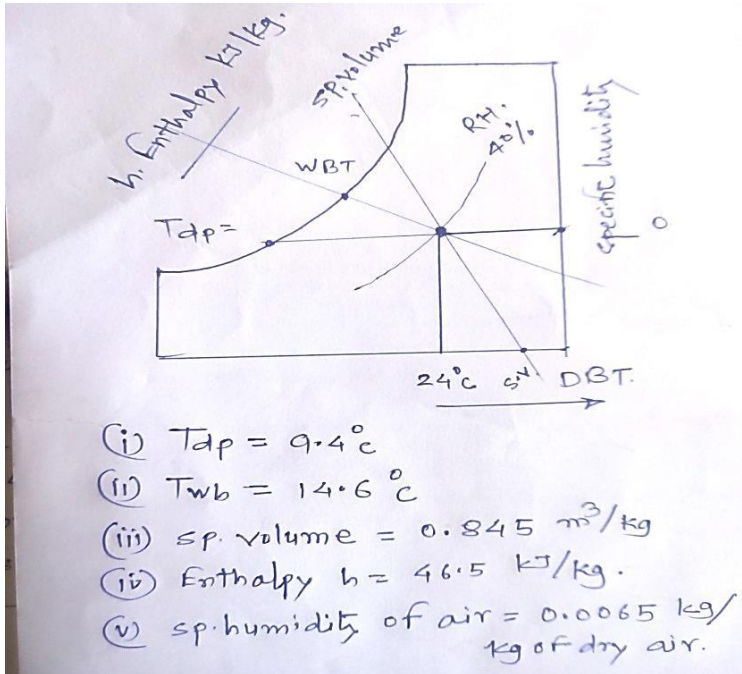 h. Enthalpy kJ/kg.
sp. volume
R.H.
40%
specific humidity
WBT
Tdp =
24°C
DBT.
(i) Tdp = 9.4°C
(ii) Twb = 14.6 °C
(iii) sp. volume = 0.845 m³/kg
(iv) Enthalpy h = 46.5 kJ/kg.
(v) sp. humidity of air = 0.0065 kg/
kg of dry air.